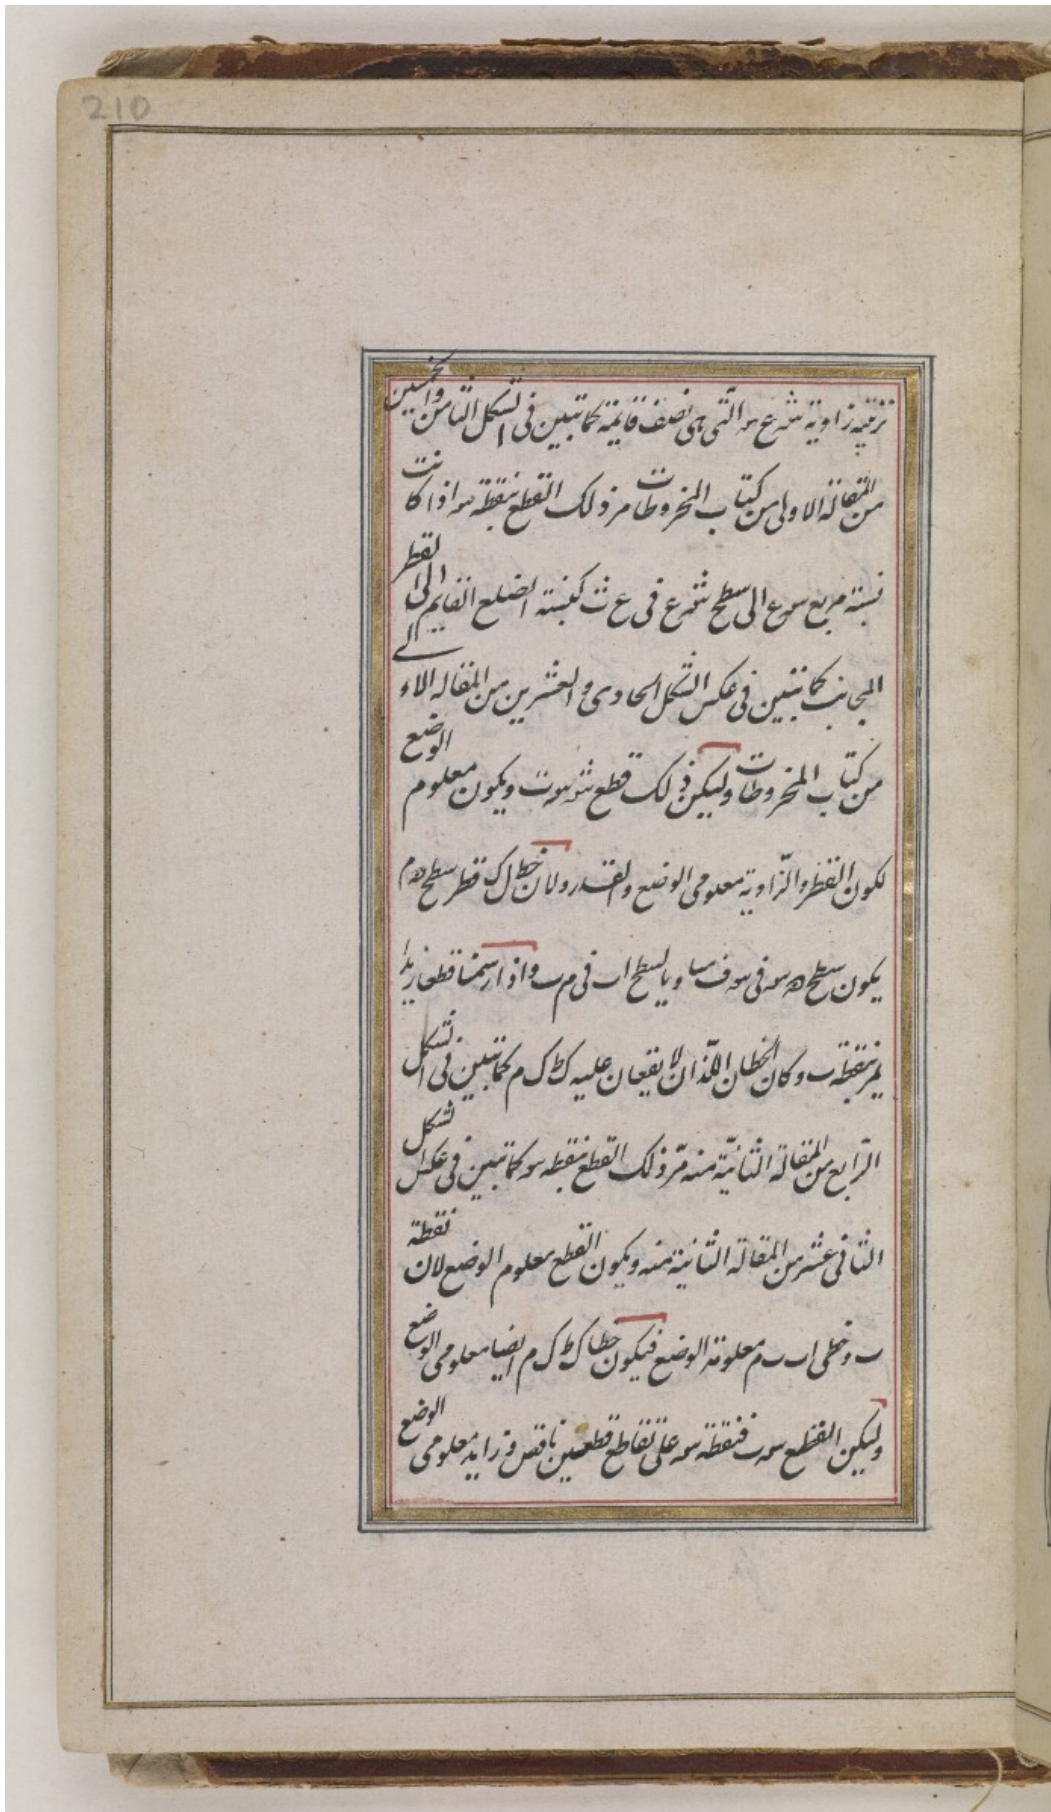 210
ترتيبه زاوية شه ع سه التى هى نصف قايمة كما تبين فى الشكل الثامن والخمسين
من المقالة الاولى من كتاب المخروطات مر ذلك القطع بنقطة سه اذا كانت
نسبة مربع سه ع الى سطح شه ع فى ع ث كنسبة الضلع القايم الى القطر
المجانب كما تبين فى عكس الشكل الحادى والعشرين من المقاله الاولى
من كتاب المخروطات وليكن ذلك قطع شه سه ت ويكون معلوم الوضع
لكون القطر والزّاوية معلومى الوضع والقدر ولان خط ل ك قطر سطح ه م
يكون سطح ه سه فى سه ف مساويا لسطح اب فى م ب واذا رسمنا قطعا زايدا
يمر بنقطة ب وكان الخطان اللّذان لا يقعان عليه ك ط ك م كما تبين فى الشكل
الرّابع من المقالة الثانيّة منه مرّ ذلك القطع بنقطه سه كما تبين فى عكس شكل
الثانى عشر من المقالة الثانية منه ويكون القطع معلوم الوضع لان نقطة
ب وخطى اب ب م معلومة الوضع فيكون خطا ك ط ك م ايضا معلومى الوضع
وليكن القطع سه ب فنقطة سه على تقاطع قطعين ناقص و زايد معلومى الوضع